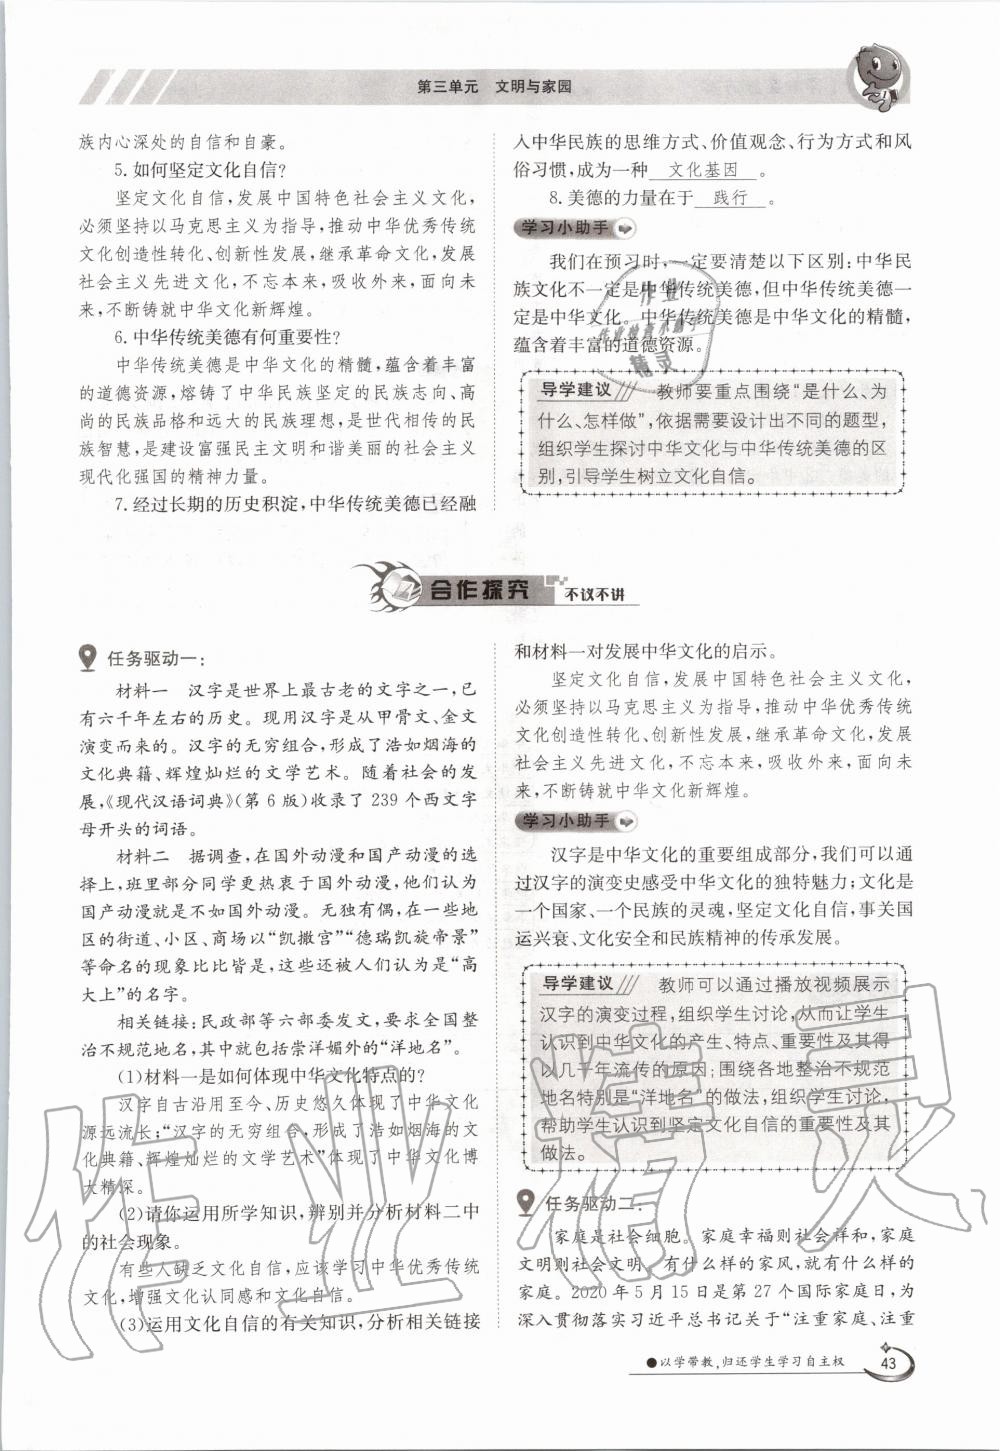 第三单元 文明与家园
族内心深处的自信和自豪。
5.如何坚定文化自信?
坚定文化自信,发展中国特色社会主义文化,
必须坚持以马克思主义为指导,推动中华优秀传统
文化创造性转化、创新性发展,继承革命文化,发展
社会主义先进文化,不忘本来,吸收外来,面向未
来,不断铸就中华文化新辉煌。
6.中华传统美德有何重要性?
中华传统美德是中华文化的精髓,蕴含着丰富
的道德资源,熔铸了中华民族坚定的民族志向、高
尚的民族品格和远大的民族理想,是世代相传的民
族智慧,是建设富强民主文明和谐美丽的社会主义
现代化强国的精神力量。
7.经过长期的历史积淀,中华传统美德已经融
入中华民族的思维方式、价值观念、行为方式和风
俗习惯,成为一种 文化基因 。
8.美德的力量在于 践行 。
学习小助手
我们在预习时,一定要清楚以下区别:中华民
族文化不一定是中华传统美德,但中华传统美德一
定是中华文化。中华传统美德是中华文化的精髓,
蕴含着丰富的道德资源。
导学建议 教师要重点围绕“是什么、为
什么、怎样做”,依据需要设计出不同的题型,
组织学生探讨中华文化与中华传统美德的区
别,引导学生树立文化自信。
合作探究 不议不讲
任务驱动一:
材料一 汉字是世界上最古老的文字之一,已
有六千年左右的历史。现用汉字是从甲骨文、金文
演变而来的。汉字的无穷组合,形成了浩如烟海的
文化典籍、辉煌灿烂的文学艺术。随着社会的发
展,《现代汉语词典》(第6版)收录了239个西文字
母开头的词语。
材料二 据调查,在国外动漫和国产动漫的选
择上,班里部分同学更热衷于国外动漫,他们认为
国产动漫就是不如国外动漫。无独有偶,在一些地
区的街道、小区、商场以“凯撒宫”“德瑞凯旋帝景”
等命名的现象比比皆是,这些还被人们认为是“高
大上”的名字。
相关链接:民政部等六部委发文,要求全国整
治不规范地名,其中就包括崇洋媚外的“洋地名”。
(1)材料一是如何体现中华文化特点的?
汉字自古沿用至今、历史悠久体现了中华文化
源远流长;“汉字的无穷组合,形成了浩如烟海的文
化典籍、辉煌灿烂的文学艺术”体现了中华文化博
大精深。
(2)请你运用所学知识,辨别并分析材料二中
的社会现象。
有些人缺乏文化自信,应该学习中华优秀传统
文化,增强文化认同感和文化自信。
(3)运用文化自信的有关知识,分析相关链接
和材料一对发展中华文化的启示。
坚定文化自信,发展中国特色社会主义文化,
必须坚持以马克思主义为指导,推动中华优秀传统
文化创造性转化、创新性发展,继承革命文化,发展
社会主义先进文化,不忘本来,吸收外来,面向未
来,不断铸就中华文化新辉煌。
学习小助手
汉字是中华文化的重要组成部分,我们可以通
过汉字的演变史感受中华文化的独特魅力;文化是
一个国家、一个民族的灵魂,坚定文化自信,事关国
运兴衰、文化安全和民族精神的传承发展。
导学建议 教师可以通过播放视频展示
汉字的演变过程,组织学生讨论,从而让学生
认识到中华文化的产生、特点、重要性及其得
以几千年流传的原因;围绕各地整治不规范
地名特别是“洋地名”的做法,组织学生讨论,
帮助学生认识到坚定文化自信的重要性及其
做法。
任务驱动二:
家庭是社会细胞。家庭幸福则社会祥和,家庭
文明则社会文明。有什么样的家风,就有什么样的
家庭。2020年5月15日是第27个国际家庭日,为
深入贯彻落实习近平总书记关于“注重家庭、注重
●以学带教,归还学生学习自主权 43
作业精灵